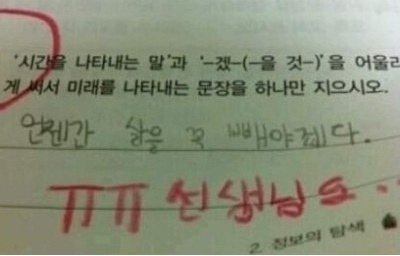 '시간을 나타내는 말'과 '-겠-(-을 것-)'을 어울리
게 써서 미래를 나타내는 문장을 하나만 지으시오.
언젠간 살을 꼭 빼야겠다.
ㅠㅠ 선생님도..
2. 정보의 탐색